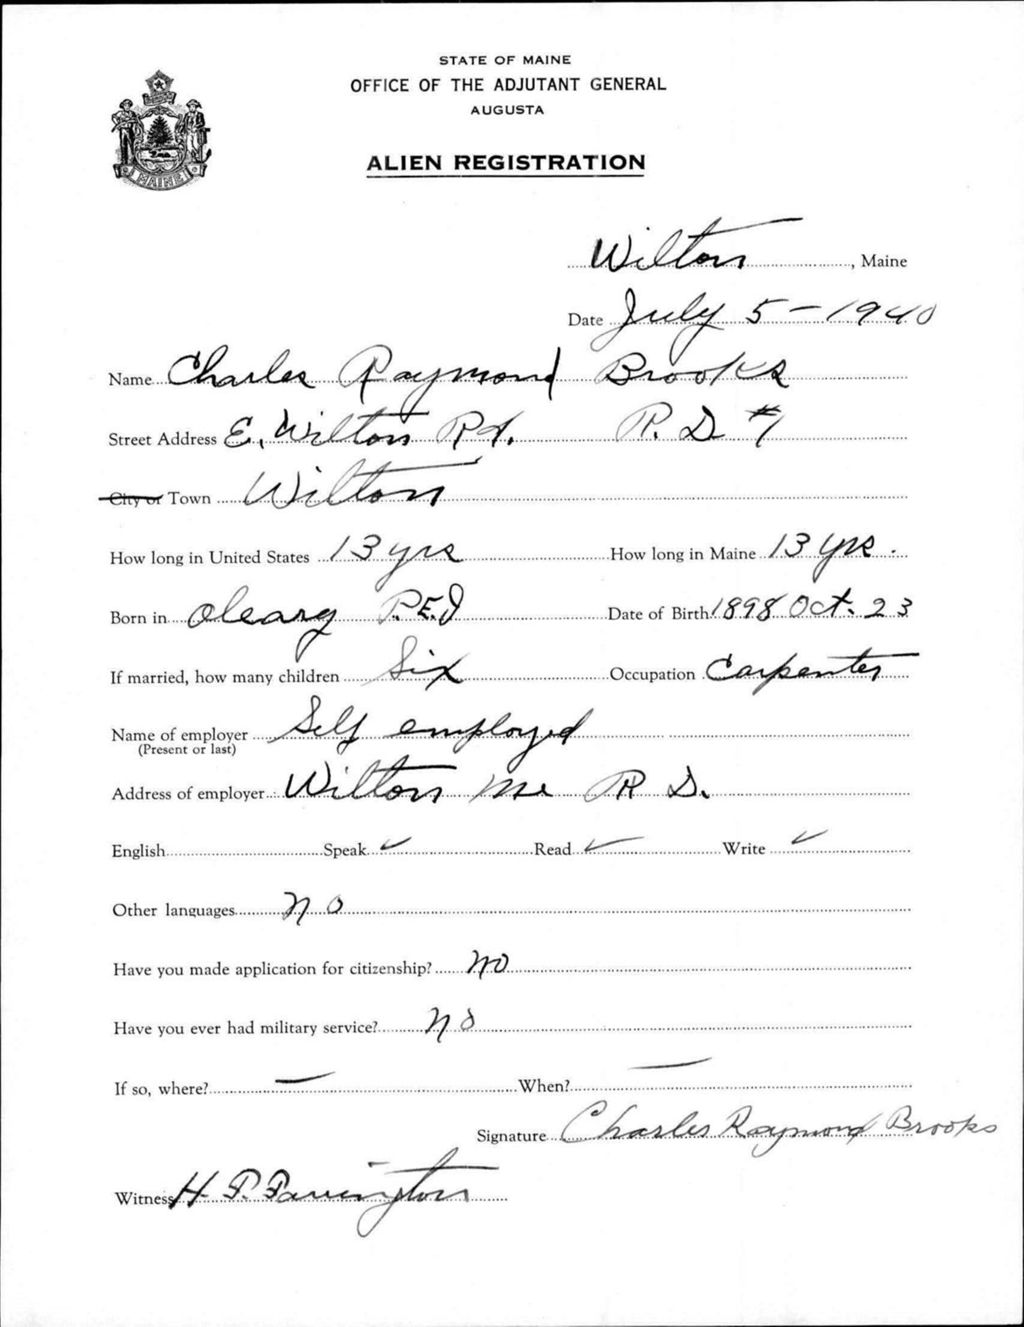 STATE OF MAINE
OFFICE OF THE ADJUTANT GENERAL
AUGUSTA
MAINE
ALIEN REGISTRATION
Wilton, Maine
Date July 5 - 1940
Name Charles Raymond Brooks
Street Address E. Wilton Rd. R. D. #1
City or Town Wilton
How long in United States 13 yrs How long in Maine 13 yrs.
Born in Oleary P.E.I Date of Birth 1898 Oct. 23
If married, how many children Six Occupation Carpenter
Name of employer Self employed
(Present or last)
Address of employer Wilton Me R D.
English Speak ✓ Read ✓ Write ✓
Other languages No
Have you made application for citizenship? No
Have you ever had military service? No
If so, where? — When? —
Signature Charles Raymond Brooks
Witness H. P. Farrington